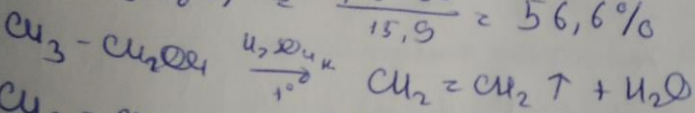 15,9 = 56,6%
CH3 - CH2OH H2SO4 к t° CH2 = CH2 ↑ + H2O
CH